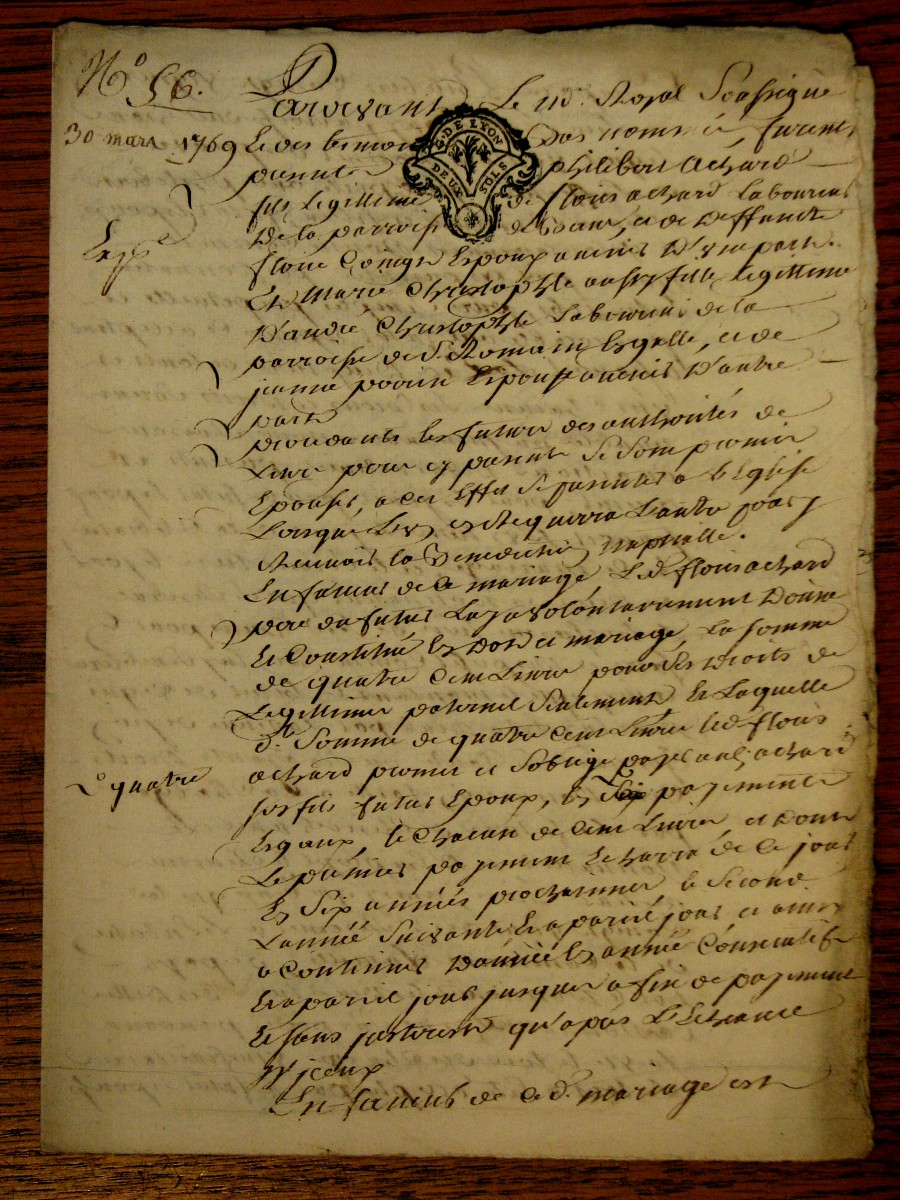 N° 56.
Pardevant Le nore. Royal Soussigné
30 mars 1769 Et Les temoins Bas nommés, furent
G. DE LYON
DEUX SOLS
presents philibert achard
fils Legittime de flois achard Laboureur
De la parroisse de et de Deffuncte
Epoux avenir D'une part.
Et Marie Christophle aussy fille Legittime
D'andré Christophle Laboureur de la
parroisse de St. Romain et de
jeanne perrin Epouse avenir D'autre
part
procedants les futurs des authorités de
Leurs pere cy presents Se Sont promis
Epouser, a cet Effet Se presenter a L'Eglise
Lorsque L'un en Requerra L'autre pour y
Recevoir la Benediction nuptialle.
En faveur de Ce mariage Led. flois achard
pere du futur Luy a volontairement Donné
Et Constitué En Dot et mariage, La somme
de quatre Cent Livres pour Ses Droits de
Legittimes paternel Seulement Et Laquelle
dte. Somme de quatre Cent Livres led. flois
achard promet et S'oblige payer aud. achard
2° quatre
son fils futur Epoux, En payements
Egaux, de Chacun de Cent Livres et Dont
Le premier payement Echerra de Ce jour
En Six années prochaines, le Second
L'année Suivante Et a pareil jour et ainsy
a Continuer D'année En année Consecutive
Et a pareil jour jusques a fin de payement
Et Sans jnterest qu'apres L'Echeance
D'jceux
En faveur de Ce d. mariage est